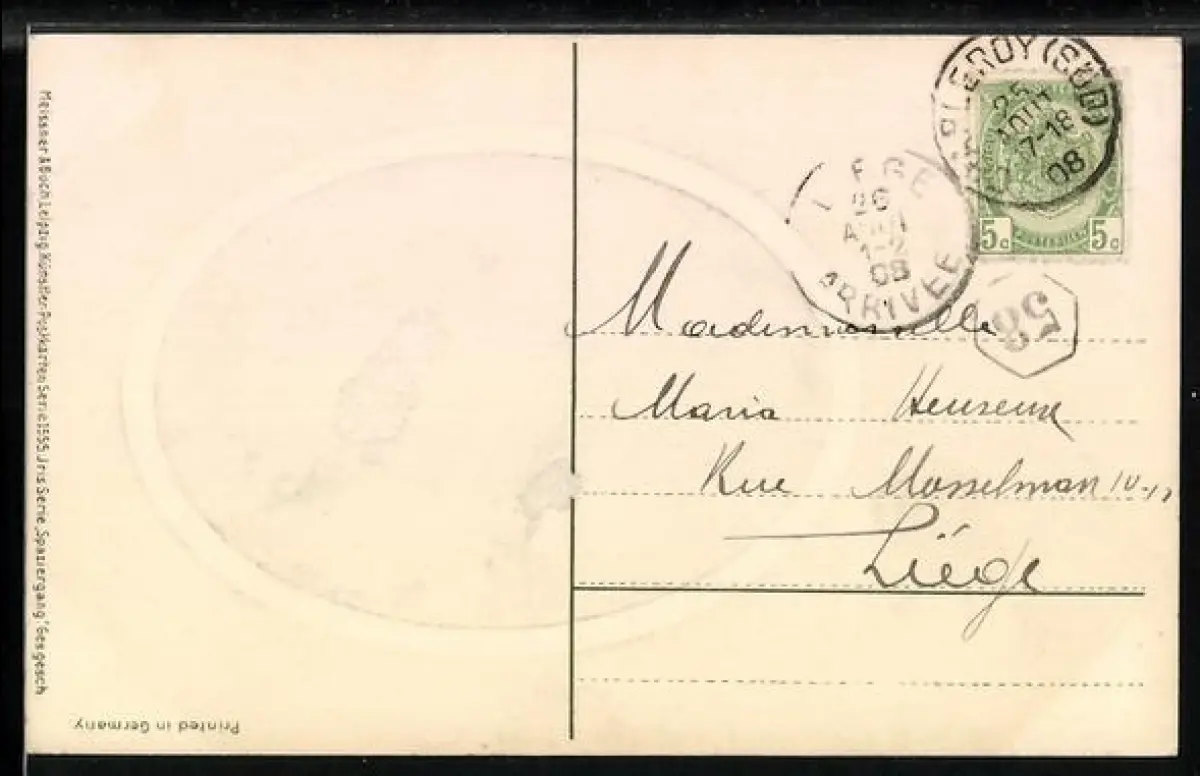 Meissner & Buch, Leipzig. Künstler-Postkarten Serie 1555 "Iris Serie, Spaziergang." Ges. gesch
Printed in Germany.
CHARLEROY (SUD)
25
AOUT
17-18
08
LIEGE
26
AOUT
1-2
08
ARRIVEE
5c 5c
58
Mademoiselle
Maria Heuseux
Rue Mosselman
Liége